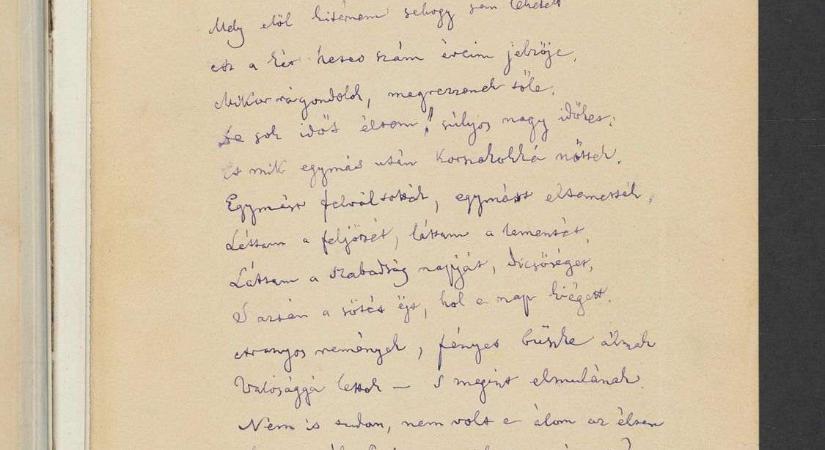 Mely elöl kitérnem sehogy sem lehetett
ez a két hetes szám éveim jelzője,
Mikor rágondolok, megrezzenek tőle.
De sok időt éltem! súlyos nagy időket;
És mik egymás után korszakokká nőttek.
Egymást felváltották, egymást eltemették,
Láttam a feljöttét, láttam a lementét
Láttam a szabadság napját, dicsőséget,
S aztán a sötét éjt, hol e nap kiégett.
Aranyos remények, fényes büszke álmok
Valósággá lettek — s megint elmulának.
Nem is tudom, nem volt e álom az életem